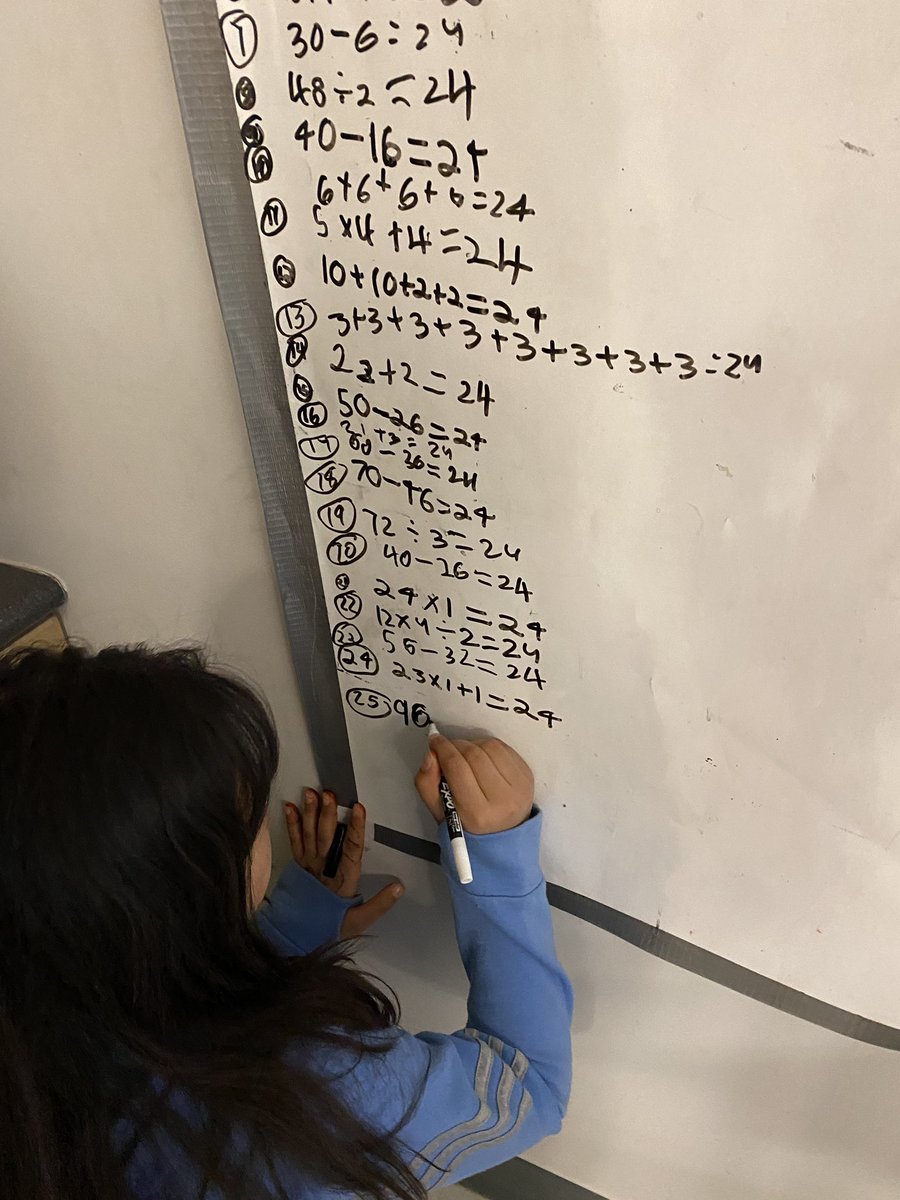 7 30-6=24
48÷2=24
40-16=24
10 6+6+6+6=24
11 5×4+4=24
10+10+2+2=24
13 3+3+3+3+3+3+3+3=24
14 22+2=24
50-26=24
16 21+3=24
17 60-36=24
18 70-46=24
19 72÷3=24
20 40-16=24
21 24×1=24
22 12×4÷2=24
23 56-32=24
24 23×1+1=24
25 96
EXPO